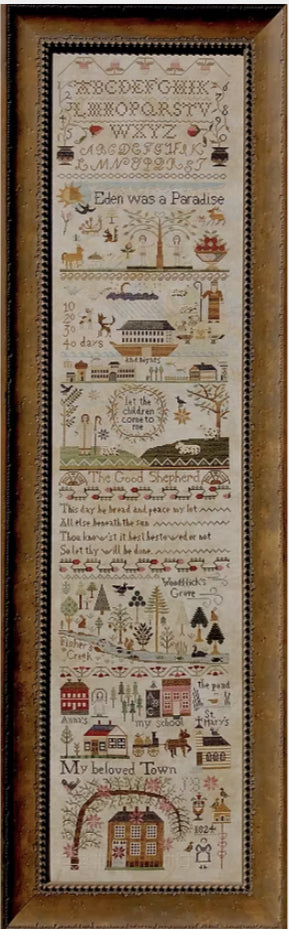 ABCDEFGHIK
LMNOPQRSTV
WXYZ
ABCDEFGHIK
LMNOPQRST
Eden was a Paradise
10
20
30
40 days
and nights
let the
children
come to
me
The Good Shepherd
This day be bread and peace my lot
All else beneath the sun
Thou know'st it best bestowed or not
So let thy will be done.
Woodlick's
Grove
Fisher's
Creek
the pond
Anna's
my school
St.
Mary's
My beloved Town
1824